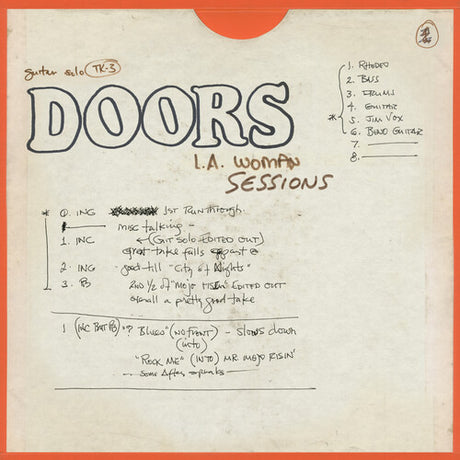 guitar solo TK-3
DOORS
L.A. WOMAN
SESSIONS
1. RHODES
2. BASS
3. DRUMS
4. GUITAR
* 5. JIM VOX
6. BEND GUITAR
7.
8.
* 0. ING 1ST RUNTHROUGH
misc talking -
1. INC ←(GIT SOLO EDITED OUT)
great take falls apart @
2. ING good till "City of Nights"
3. PB 2ND 1/2 OF "MOJO RISEN" EDITED OUT
overall a pretty good take
1 (INC BUT PB) "? BLUES" (NO FRONT) - SLOWS down
(into)
"ROCK ME" (INTO) MR. MOJO RISIN'
Some After